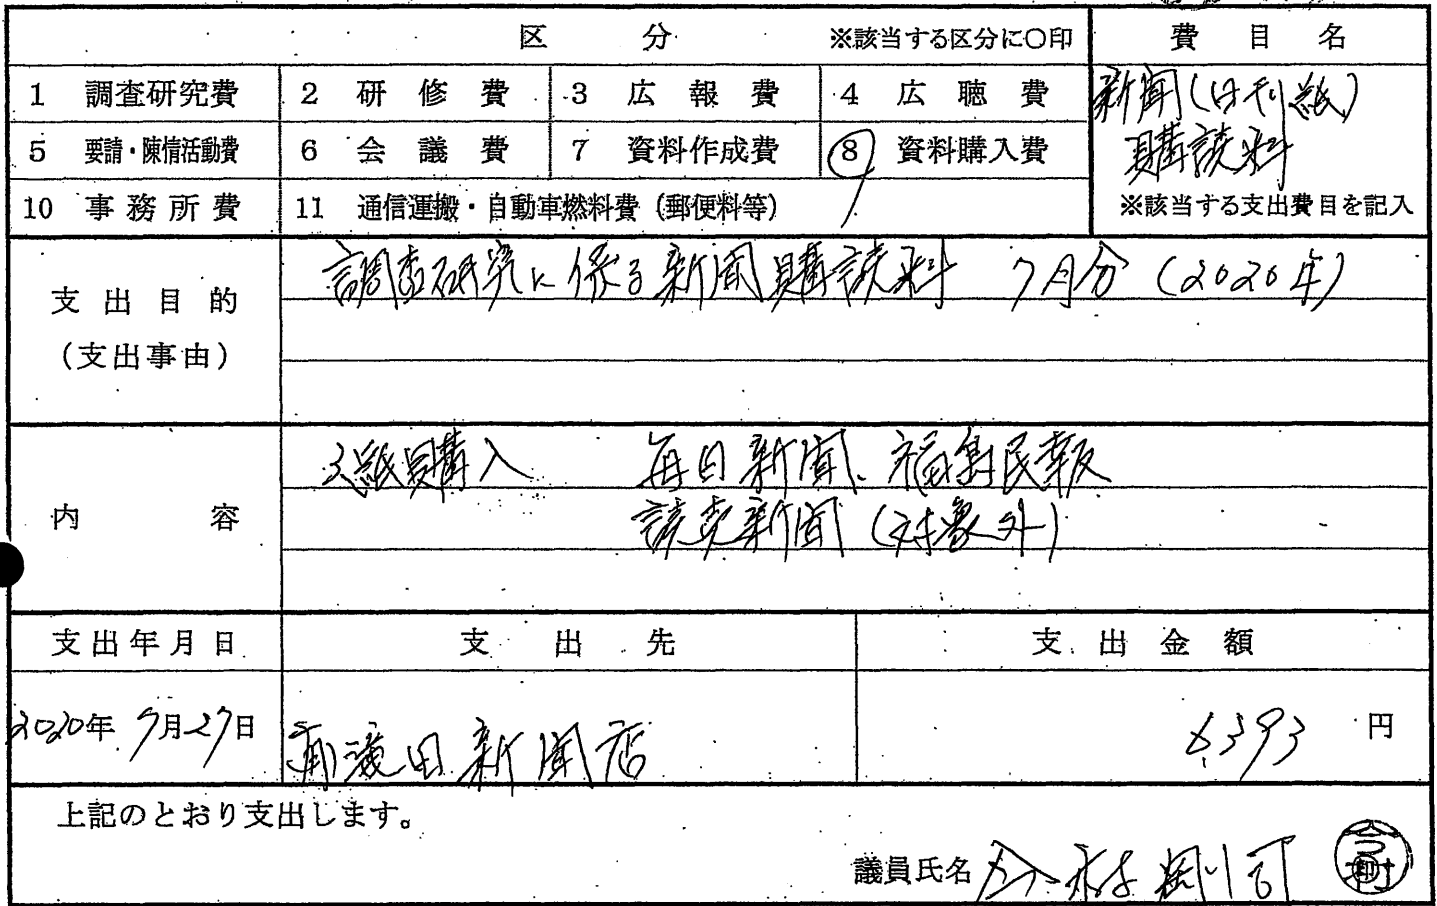 区 分 ※該当する区分に○印 費目名
1 調査研究費 2 研修費 3 広報費 4 広聴費
新聞(日刊紙)
5 要請・陳情活動費 6 会議費 7 資料作成費 8 資料購入費
購読料
10 事務所費 11 通信運搬・自動車燃料費(郵便料等) ※該当する支出費目を記入
支出目的
(支出事由)
調査研究に係る新聞購読料 7月分(2020年)
内容
紙購入 毎日新聞、福島民報
読売新聞(対象外)
支出年月日 支出先 支出金額
2020年 7月27日 濱田新聞店 6,393 円
上記のとおり支出します。
議員氏名 今村剛司 今村印